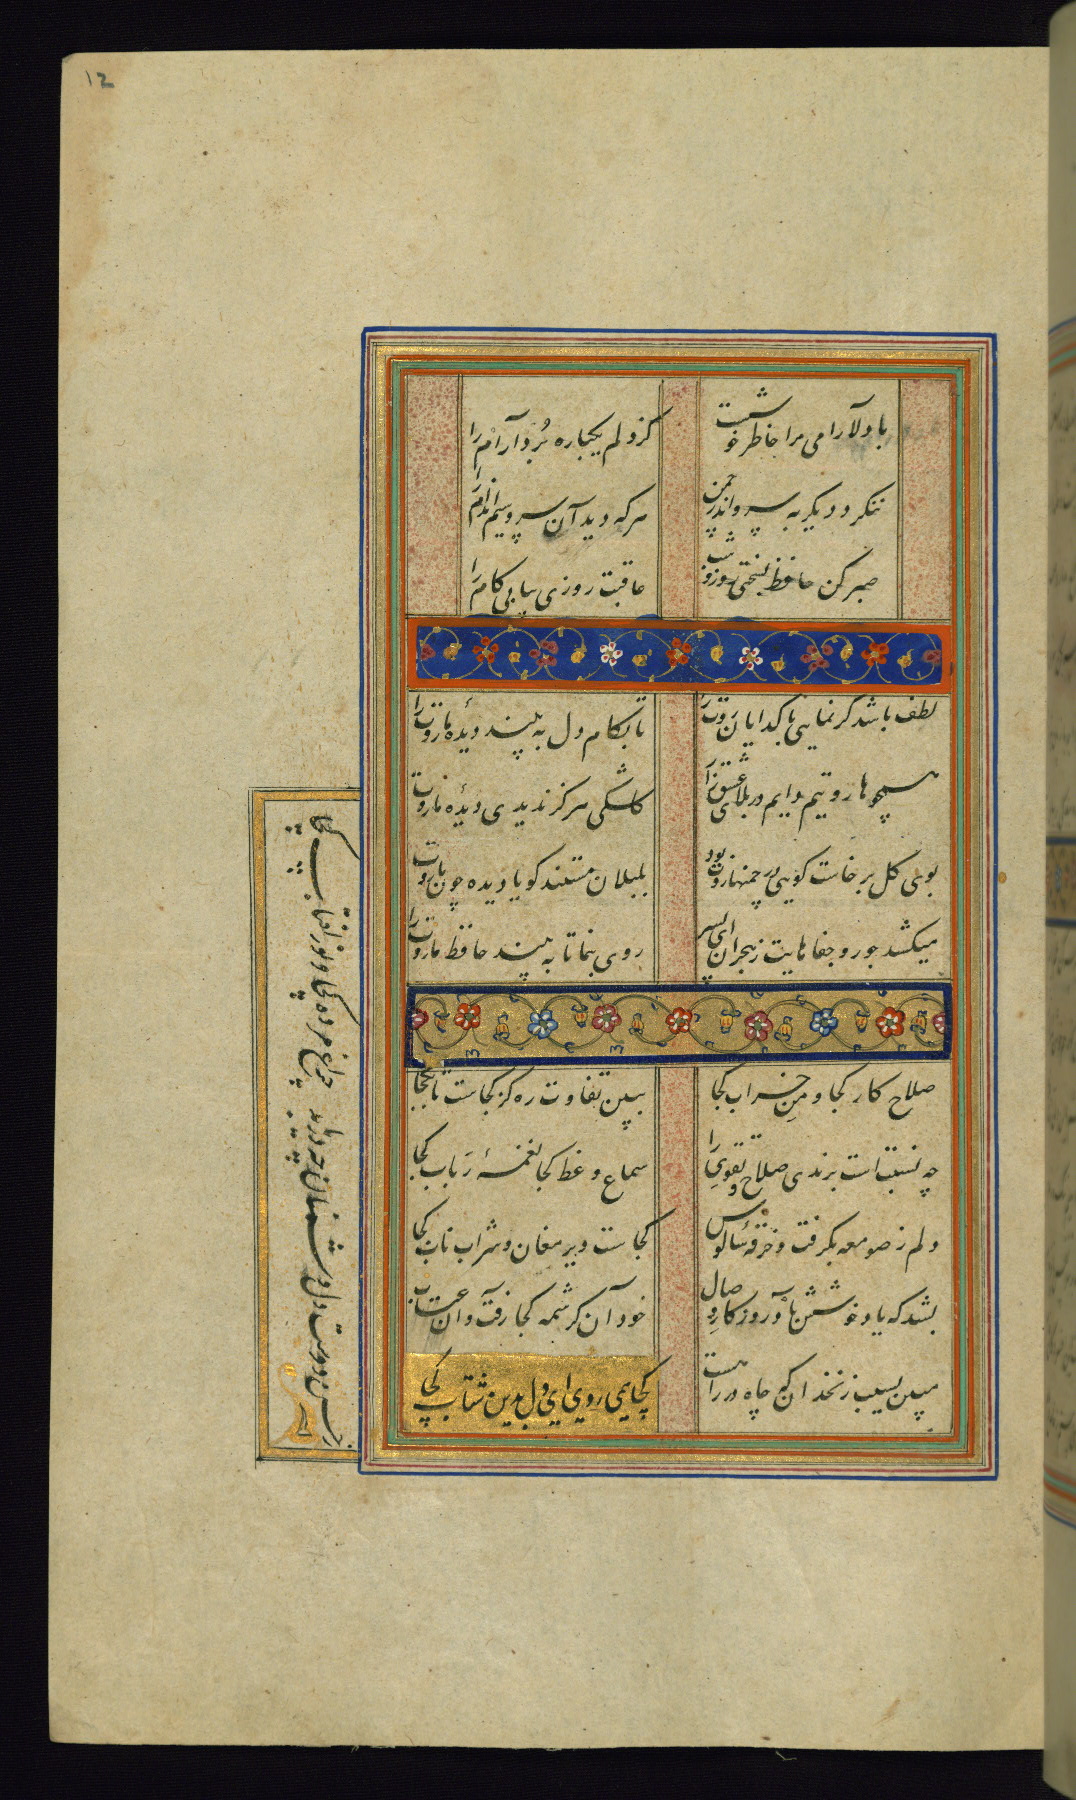 12
با دلآرامی مرا خاطر خوشست کز دلم یکباره بُرد آرام را
ننکرد دیکر به سرو اندر چمن هرکه دید آن سرو سیم اندام را
صبر کن حافظ بسختی روز و شب عاقبت روزی بیابی کام را
لطف باشد کر نمایی با کدایان روت را تا بکام دل به بیند دیدهٔ ما روت را
همچو هاروتیم دایم در بلای عشق زار کاشکی هرکز ندیدی دیدهٔ ماروت را
بوی کل برخاست کویی در چمنها روت بود بلبلان مستند کویا دیده چون ماروت
میکشد جور و جفاهایت ز هجران ای پسر روی بنما تا به بیند حافظ ماروت را
صلاح کار کجا و من خراب کجا ببین تفاوت ره کز کجاست تا بکجا
چه نسبتست برندی صلاح و تقوی را سماع وعظ کجا نغمهٔ رباب کجا
دلم ز صومعه بکرفت و خرقهٔ سالوس کجاست دیر مغان و شراب ناب کجا
بشد که یاد خوشش باد روزکار وصال خود آن کرشمه کجا رفت و آن عتاب
مبین بسیب زنخدان که چاه در راهست کجا همی روی ای دل بدین شتاب کجا
ز روی دوست دل دشمنان چه دریابد چراغ مرده کجا و نور آفتاب کجا